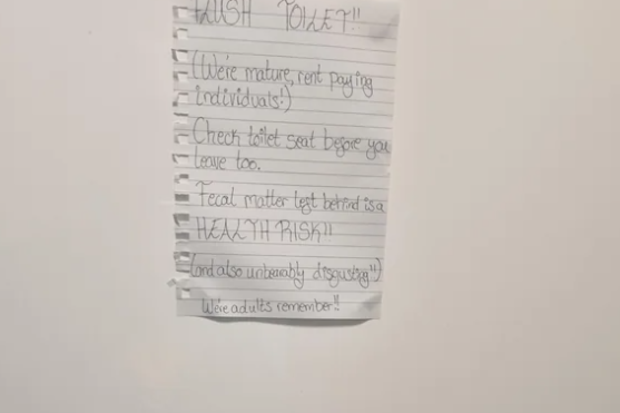 FLUSH TOILET!!
(We're mature, rent paying
individuals!)
Check toilet seat before you
leave too.
Fecal matter left behind is a
HEALTH RISK!!
(and also unbearably disgusting!!)
We're adults remember!!